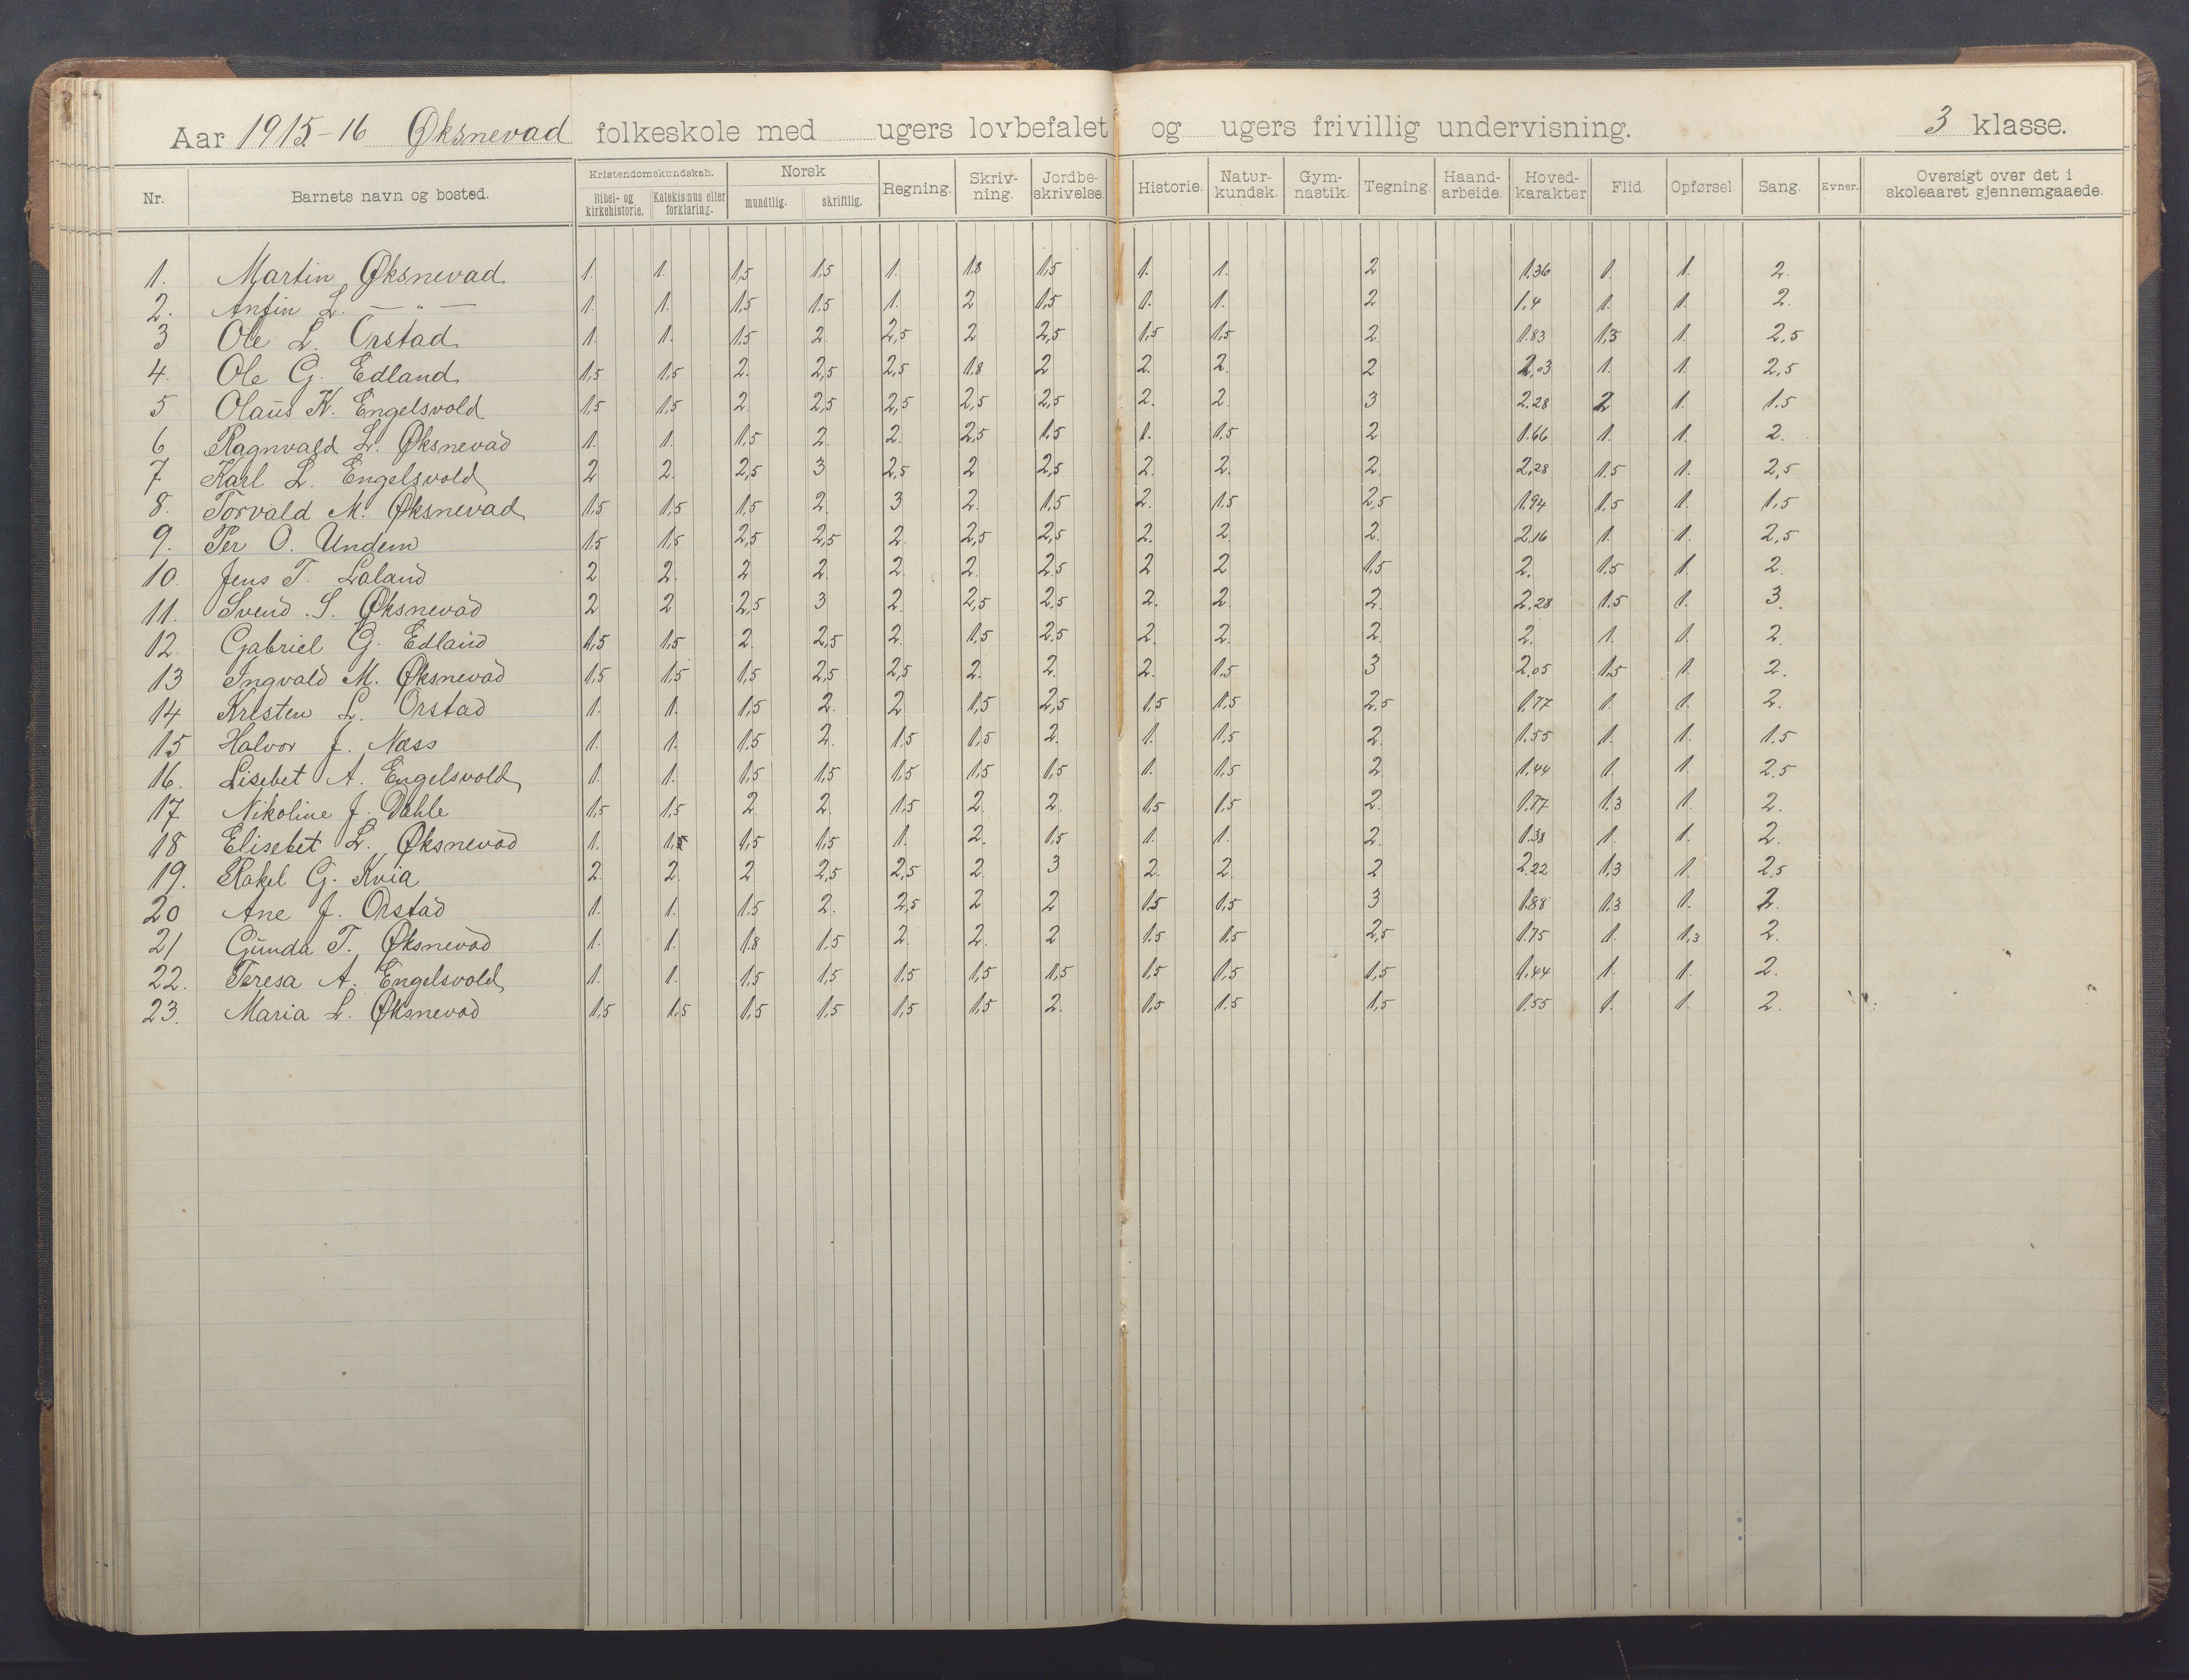 Aar 1915-16 Øksnevad folkeskole med ugers lovbefalet og ugers frivillig undervisning. 3 klasse.
Nr. Barnets navn og bosted. Kristendomskundskab. Bibel- og kirkehistorie. Katekismus eller forklaring. Norsk mundtlig. skriftlig. Regning. Skriv-ning. Jordbe-skrivelse. Historie. Natur-kundsk. Gym-nastik. Tegning Haand-arbeide. Hoved-karakter Flid. Opførsel. Sang. Evner. Oversigt over det i skoleaaret gjennemgaaede.
1. Martin Øksnevad 1. 1. 1,5 1,5 1. 1.8 1,5 1. 1. 2 1.36 1. 1. 2.
2. Anfin L. — „ — 1. 1. 1,5 1.5 1. 2 1,5 1. 1. 2 1.4 1. 1. 2.
3 Ole L. Orstad 1. 1. 1.5 2. 2,5 2 2,5 1,5 1,5 2 1.83 1,3 1. 2,5
4. Ole G. Edland 1,5 1,5 2. 2,5 2,5 1.8 2 2. 2. 2 2,03 1. 1. 2,5
5 Olaus K. Engelsvold 1,5 1,5 2 2,5 2,5 2,5 2,5 2. 2. 3 2.28 2 1. 1.5
6 Ragnvald L. Øksnevad 1. 1. 1,5 2. 2. 2,5 1,5 1. 1.5 2 1.66 1. 1. 2.
7 Karl L. Engelsvold 2 2. 2,5 3 2,5 2 2,5 2. 2. 2. 2,28 1.5 1. 2,5
8. Torvald M. Øksnevad 1,5 1,5 1,5 2. 3 2. 1,5 2. 1.5 2,5 1.94 1.5 1. 1,5
9. Per O. Undem 1,5 1,5 2,5 2,5 2. 2,5 2,5 2. 2. 2. 2.16 1. 1. 2,5
10. Jens T. Laland 2 2. 2 2. 2. 2. 2.5 2 2 1.5 2. 1.5 1. 2.
11. Svend S. Øksnevad 2 2 2,5 3 2. 2,5 2,5 2. 2. 2. 2,28 1.5 1. 3.
12. Gabriel G. Edland 1,5 1,5 2. 2,5 2. 1.5 2.5 2. 2. 2. 2. 1. 1. 2.
13 Ingvald M. Øksnevad 1,5 1,5 1,5 2,5 2,5 2. 2. 2. 1.5 3 2.05 1.5 1. 2.
14 Kristen L. Orstad 1. 1. 1,5 2. 2 1,5 2,5 1,5 1.5 2,5 1,77 1. 1. 2.
15 Halvor J. Næss 1. 1. 1.5 2. 1.5 1,5 2. 1. 1,5 2. 1.55 1. 1. 1.5
16. Lisebet A. Engelsvold 1. 1. 1.5 1,5 1,5 1,5 1,5 1. 1,5 2. 1,44 1. 1. 2.5
17. Nikoline J. Dahle 1,5 1,5 2 2. 1,5 2. 2. 1,5 1,5 2. 1.77 1.3 1. 2.
18 Elisebet L. Øksnevad 1. 1,5 1,5 1,5 1. 2. 1.5 1. 1. 2. 1.38 1. 1. 2.
19. Rakel G. Kvia 2. 2. 2 2,5 2,5 2. 3 2. 2. 2 2.22 1,3 1. 2.5
20 Ane J. Orstad 1. 1. 1.5 2. 2,5 2 2 1.5 1,5 3 1.88 1.3 1. 2.
21 Gunda T. Øksnevad 1. 1. 1.8 1.5 2. 2. 2 1.5 1.5 2,5 1.75 1. 1,3 2.
22. Teresa A. Engelsvold 1. 1. 1,5 1,5 1.5 1,5 1,5 1,5 1,5 1,5 1,44 1. 1. 2.
23. Maria L. Øksnevad 1,5 1,5 1,5 1,5 1,5 1,5 2. 1,5 1.5 1,5 1.55 1. 1. 2.